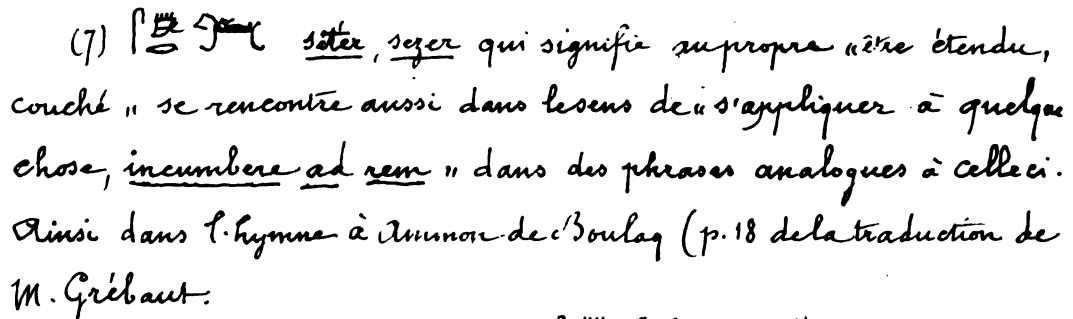 (7) sŧer, sezer qui signifie au propre « être étendu,
couché » se rencontre aussi dans le sens de « s'appliquer à quelque
chose, incumbere ad rem » dans des phrases analogues à celle ci.
Ainsi dans l'hymne à Ammon de Boulaq (p. 18 de la traduction de
M. Grébaut.